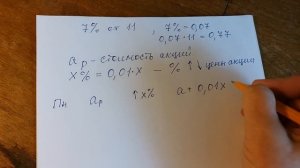 7% от 11 , 7% = 0,07
0,07·11 = 0,77
a р – стоимость акций
x% = 0,01·x – % ↑↓ цены акции
Пн aр ↑x% a + 0,01x